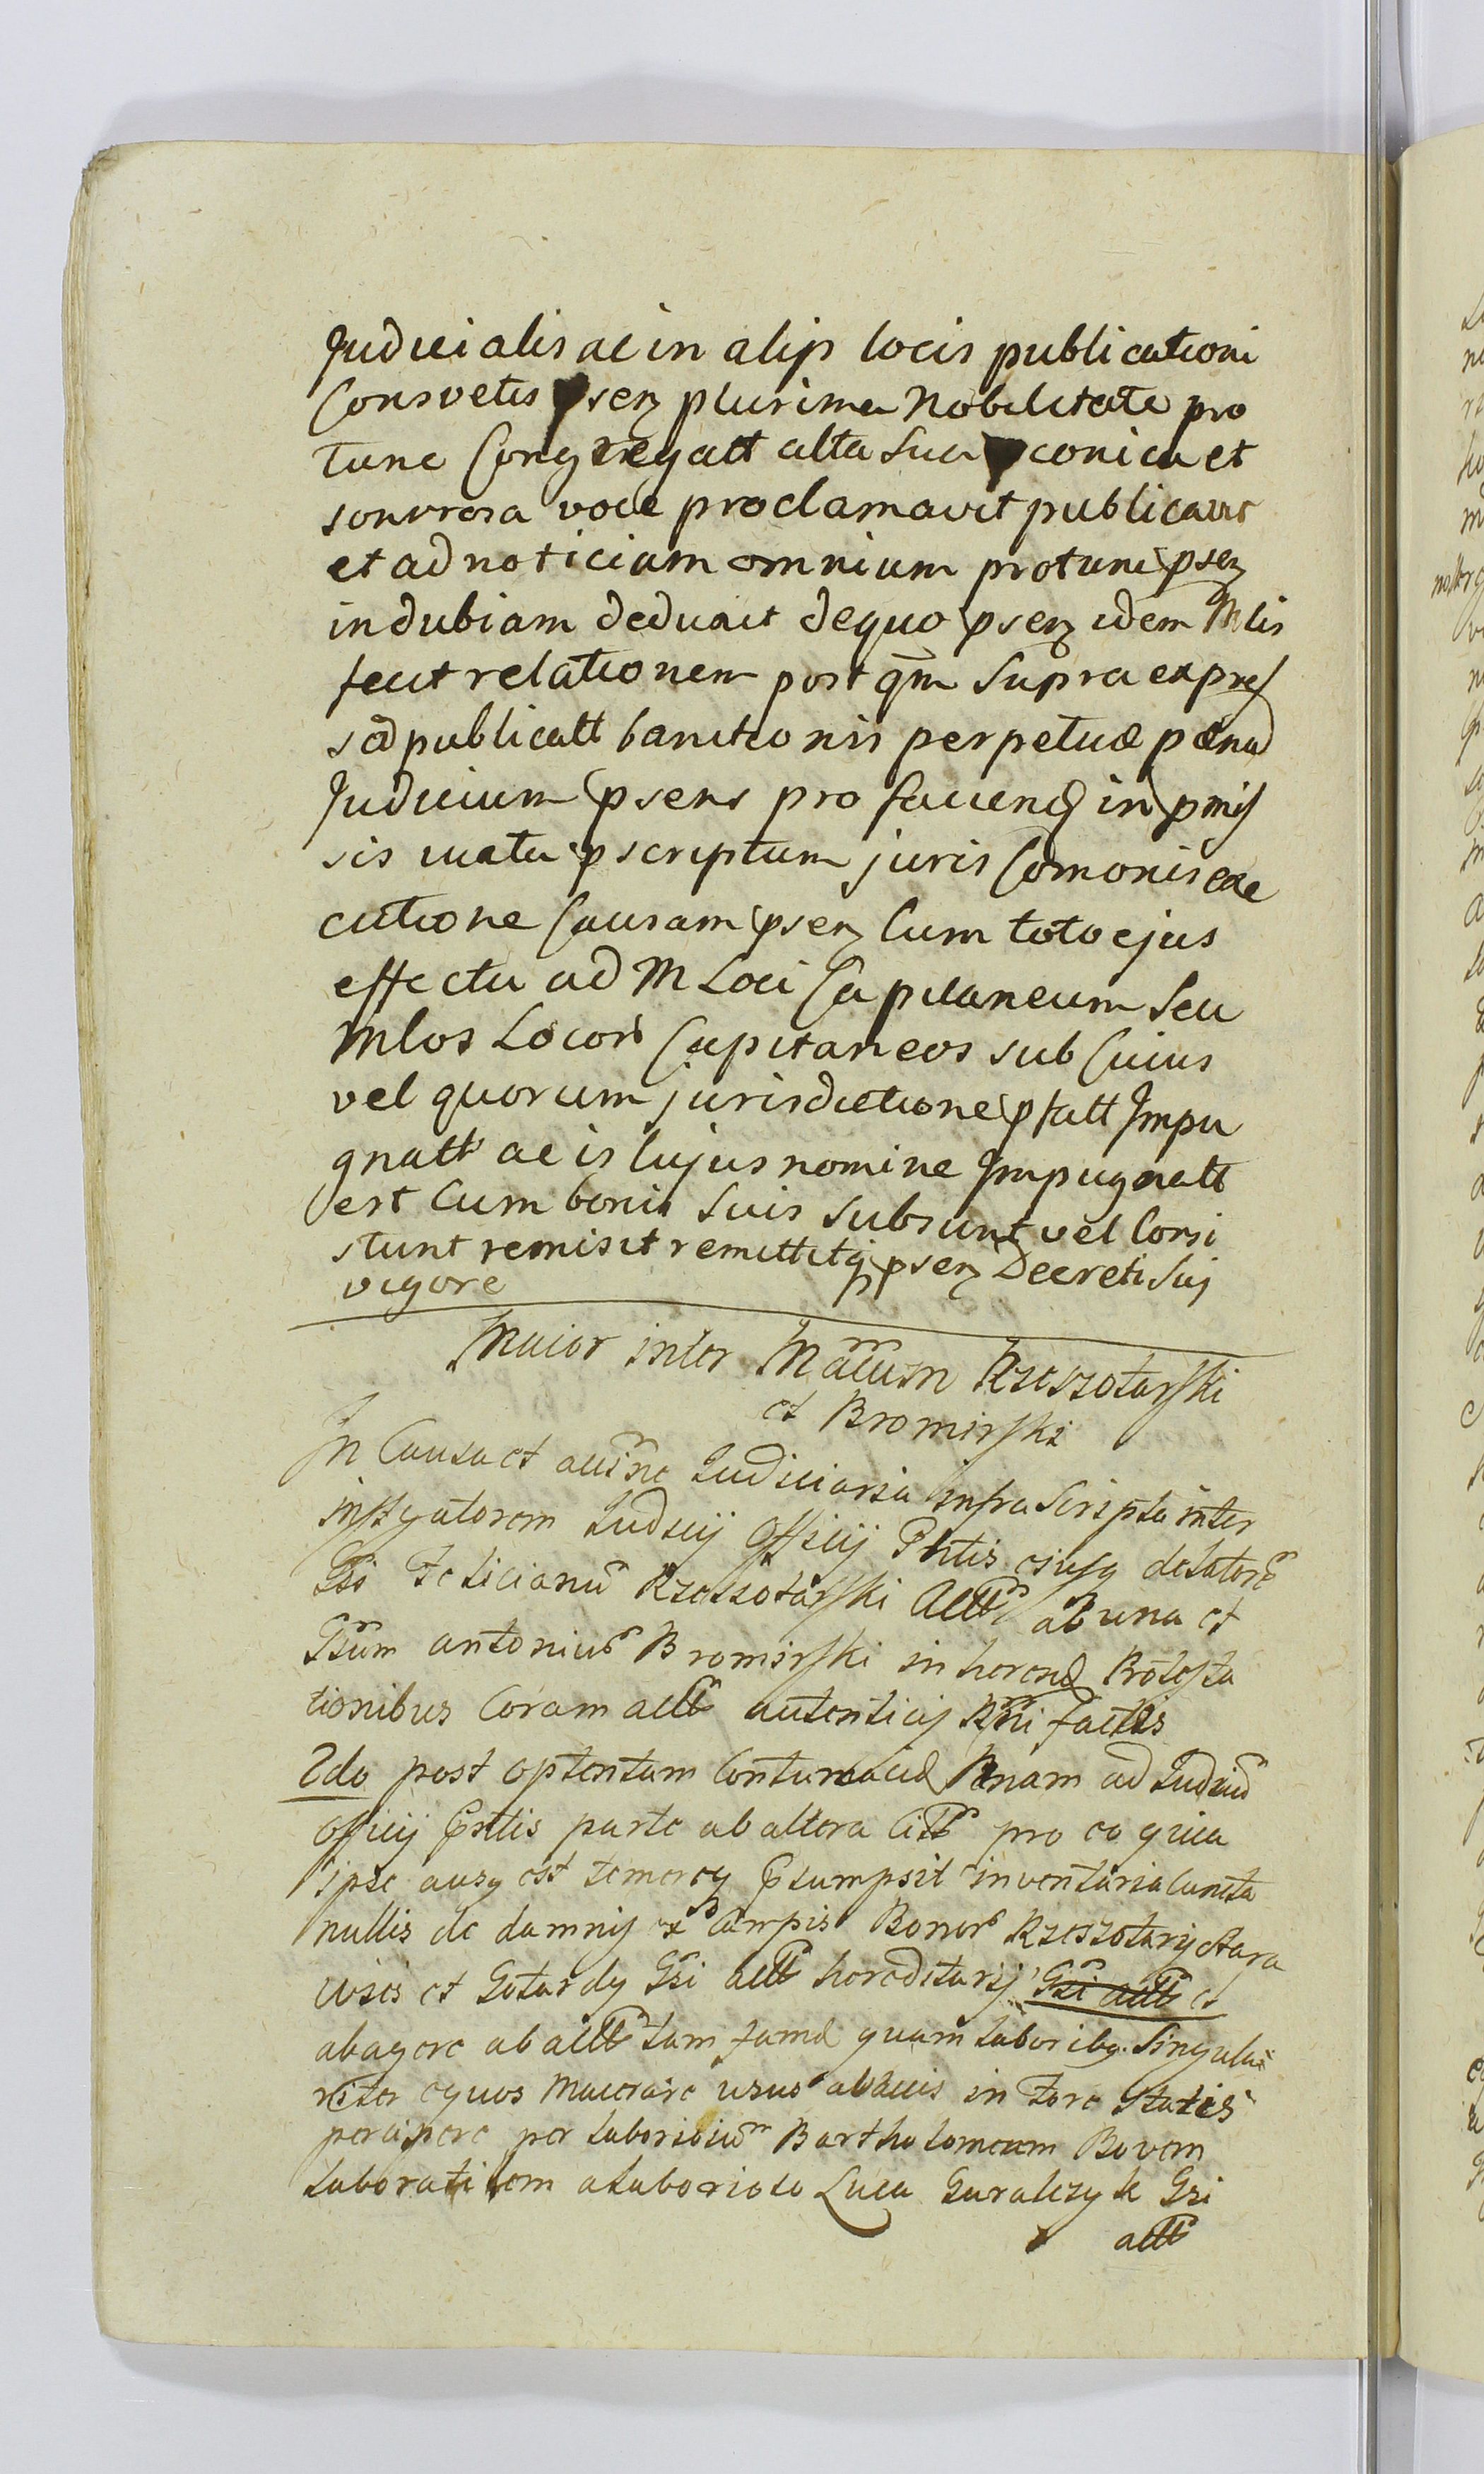 Judicialis ac in alijs locis publicationi
Consvetis psen plurima Nobilitate pro
tunc Congregatt alta Sua conica et
sonorosa voce proclamavit publicavit
et ad noticiam omnium protunc psen
indubiam deduxit dequo psen idem Mlis
fecit relationem post qm Supra expres
sa publicatt banitionis perpetuæ pæna
Judicium psens pro faciend in pmis
sis iuxta pscriptum juris Comonis exe
cutione Causam psen Cum toto ejus
effectu ad M Loci Capitaneum Seu
Mlos Locor Capitaneos sub Cuius
vel quorum jurisdictione pfatt Impu
gnatt ac is Cujus nomine Impugnatt
est Cum bonis Suis Subsunt vel Consi
stunt remisit remittitq psen Decreti Sui
vigore
Maior inter Mcum Rzeszotarski
et Bromirski
In Causa et acine Judiciaria infra Scripta inter
instigatorem Judicij Officij Pntis ejusq delatore
Gsi Felicianu Rzeszotarski Actt ab una et
Gsum antoniu Bromirski inherend Protesta
tionibus Coram actt autenticis Rni factis
2do post optentam Contumaciæ Pænam ad Judiciu
Officij Pntis parte ab altera Citt pro eo quia
ipse ausq est temereq Psumpsit inventaria cuncta
nullis de damnis x Campis Bonor Rzeszotary Stara
wies et Gotardy Gsi actt hereditarij Gsi actt et
abagere ab actt tam famæ quam laboribq Singula
riter equos Macerare usus abacis in fore Statis
percipere per laboriosum Bartholomeum Bovem
laboratilem a laborioso Luca Guralczyk Gsi
actt